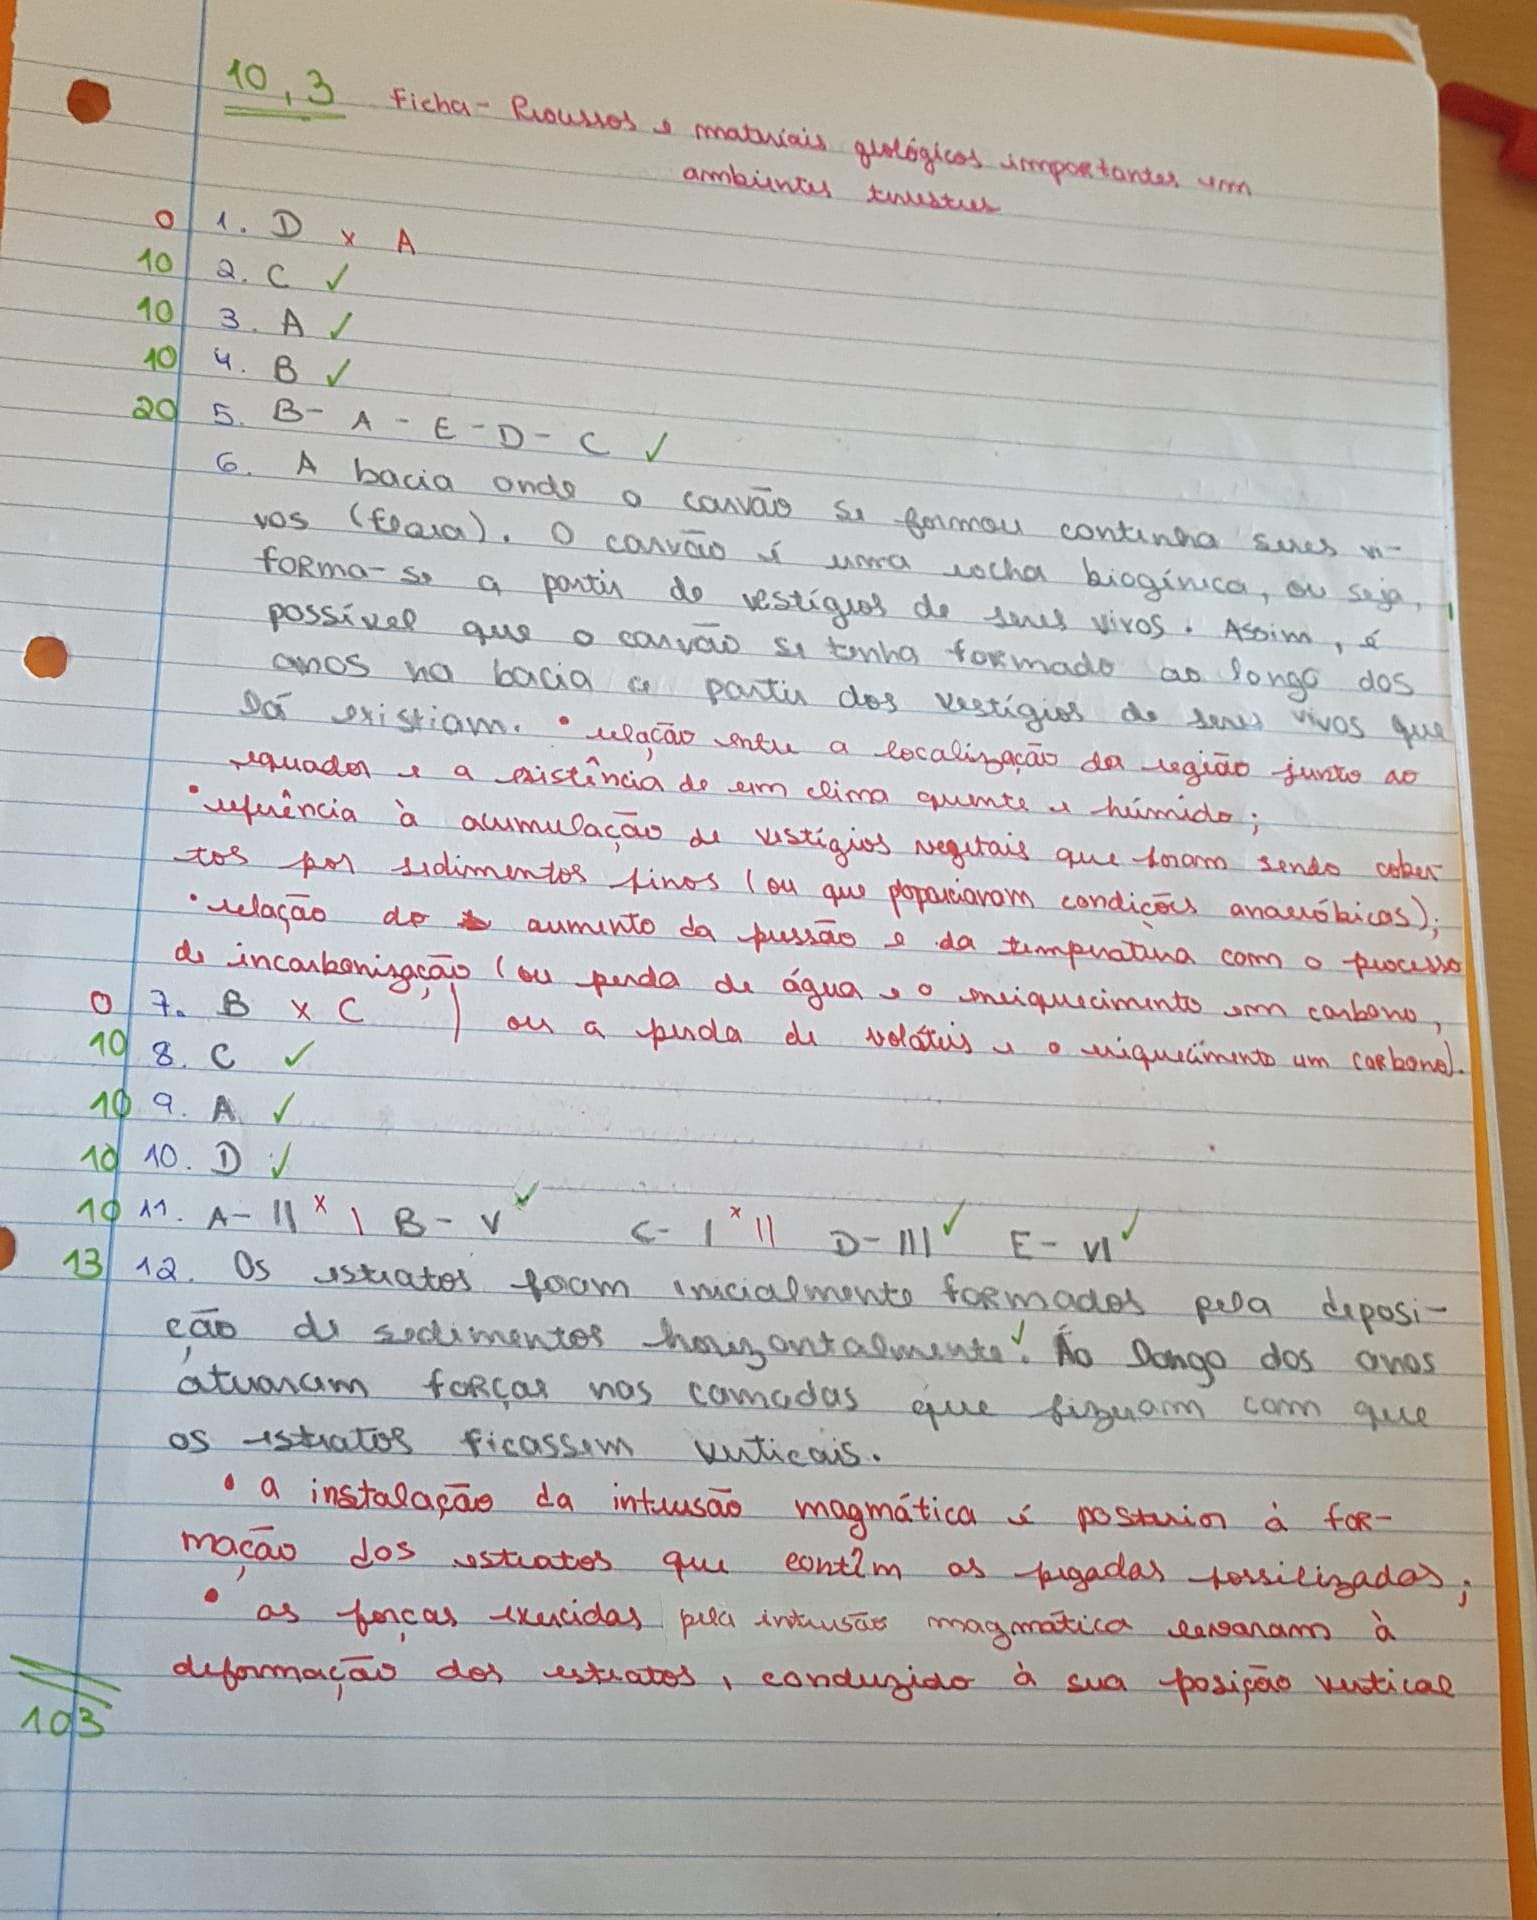 10,3 Ficha - Processos e materiais geológicos importantes em
ambientes terrestres
0 1. D x A
10 2. C ✓
10 3. A ✓
10 4. B ✓
20 5. B - A - E - D - C ✓
6. A bacia onde o carvão se formou continha seres vi-
vos (flora). O carvão é uma rocha biogénica, ou seja,
forma-se a partir de vestígios de seres vivos. Assim, é
possível que o carvão se tenha formado ao longo dos
anos na bacia a partir dos vestígios de seres vivos que
lá existiam. • relação entre a localização da região junto ao
equador e a existência de um clima quente e húmido;
• referência à acumulação de vestígios vegetais que foram sendo cober-
tos por sedimentos finos (ou que poporciavam condições anaeróbicas);
• relação do aumento da pressão e da temperatura com o processo
de incarbonização (ou perda de água e o enriquecimento em carbono,
0 7. B x C ) ou a perda de voláteis e o enriquecimento em carbono).
10 8. C ✓
10 9. A ✓
10 10. D ✓
10 11. A - II x I B - V ✓ C - I x II D - III ✓ E - VI ✓
13 12. Os estratos foam inicialmente formados pela deposi-
ção de sedimentos horizontalmente ✓. Ao longo dos anos
atuaram forças nas camadas que fizeram com que
os estratos ficassem verticais.
• a instalação da intrusão magmática é posterior à for-
mação dos estratos que contêm as pegadas fossilizadas;
• as forças exercidas pela intrusão magmática levaram à
deformação dos estratos, conduzido à sua posição vertical
103